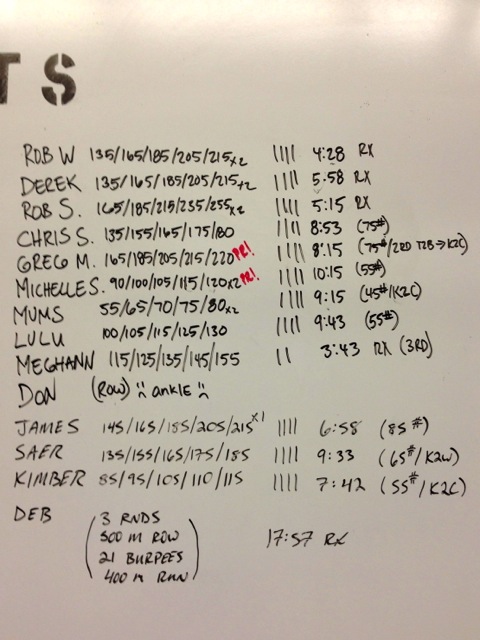 TS
ROB W 135/165/185/205/215x2 |||| 4:28 RX
DEREK 135/165/185/205/215x2 |||| 5:58 RX
ROB S. 165/185/215/235/255x2 |||| 5:15 RX
CHRIS S. 135/155/165/175/180 |||| 8:53 (75#)
GREG M. 165/185/205/215/220 PR! |||| 8:15 (75#/2RD T2B→K2C)
MICHELLE S. 90/100/105/115/120x2 PR! |||| 10:15 (55#)
MUMS 55/65/70/75/80x2 |||| 9:15 (45#/K2C)
LULU 100/105/115/125/130 |||| 9:43 (55#)
MEGHANN 115/125/135/145/155 || 3:43 RX (3RD)
DON (ROW) :( ANKLE :(
JAMES 145/165/185/205/215x1 |||| 6:58 (85#)
SAER 135/155/165/175/185 |||| 9:33 (65#/K2W)
KIMBER 85/95/105/110/115 |||| 7:42 (55#/K2C)
DEB (3 RNDS
500 M ROW
21 BURPEES
400 M RUN)
17:57 RX